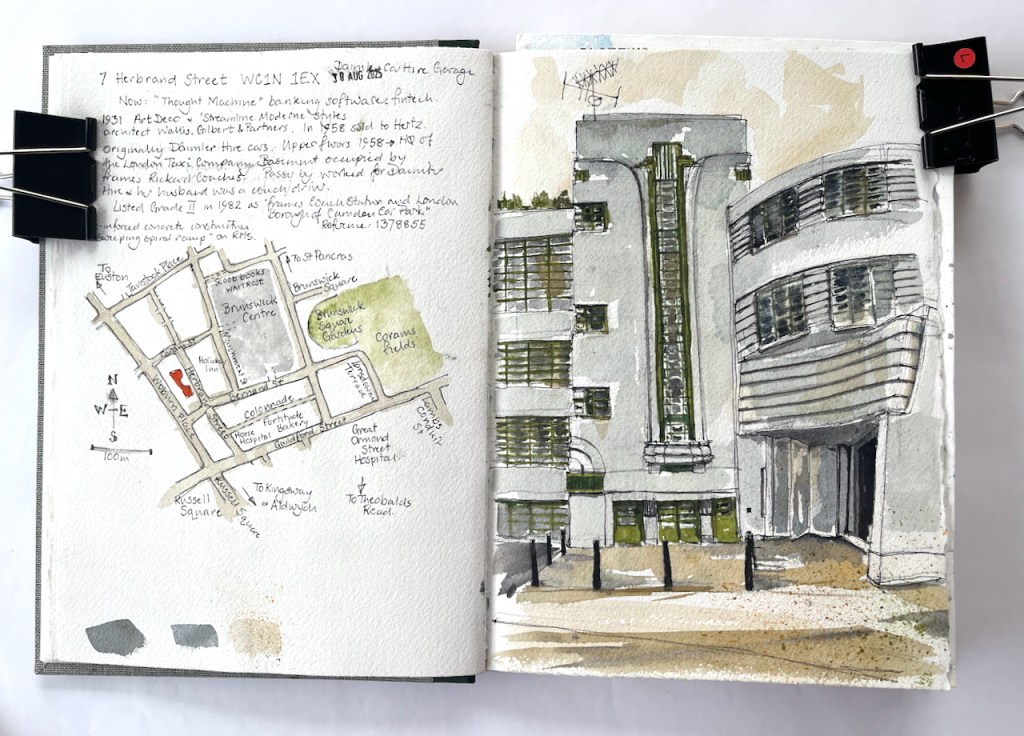 7 Herbrand Street WC1N 1EX
Daimler Car Hire Garage
30 AUG 2025
Now: "Thought Machine" banking software, fintech.
1931 Art Deco + "Streamline Moderne" styles
architect Wallis, Gilbert & Partners. In 1958 sold to Hertz.
Originally Daimler hire cars. Upper floors 1958 → HQ of
the London Taxi Company. Basement occupied by
Frames Rickard Coaches. Passer by worked for Daimler
Hire & her husband was a coach driver.
Listed Grade II in 1982 as "Frames Coach Station and London
Borough of Camden Car Park"
Reference: 1378855
reinforced concrete construction
sweeping spiral ramp" on RHS.
To Euston
Tavistock Place
To St Pancras
SKOOB BOOKS
WAITROSE
Brunswick Square
Brunswick Centre
Brunswick Square Gardens
Corams fields
Coram St
Holiday Inn
Herbrand Street
Woburn Place
Bernard St
Colonnade
Horse Hospital
Fortitude Bakery
Guildford Street
Lansdowne Terrace
Lambs Conduit St
Great Ormond Street Hospital
N
W E
S
100m
Russell Square
Russell Square
To Kingsway + Aldwych
To Theobalds Road